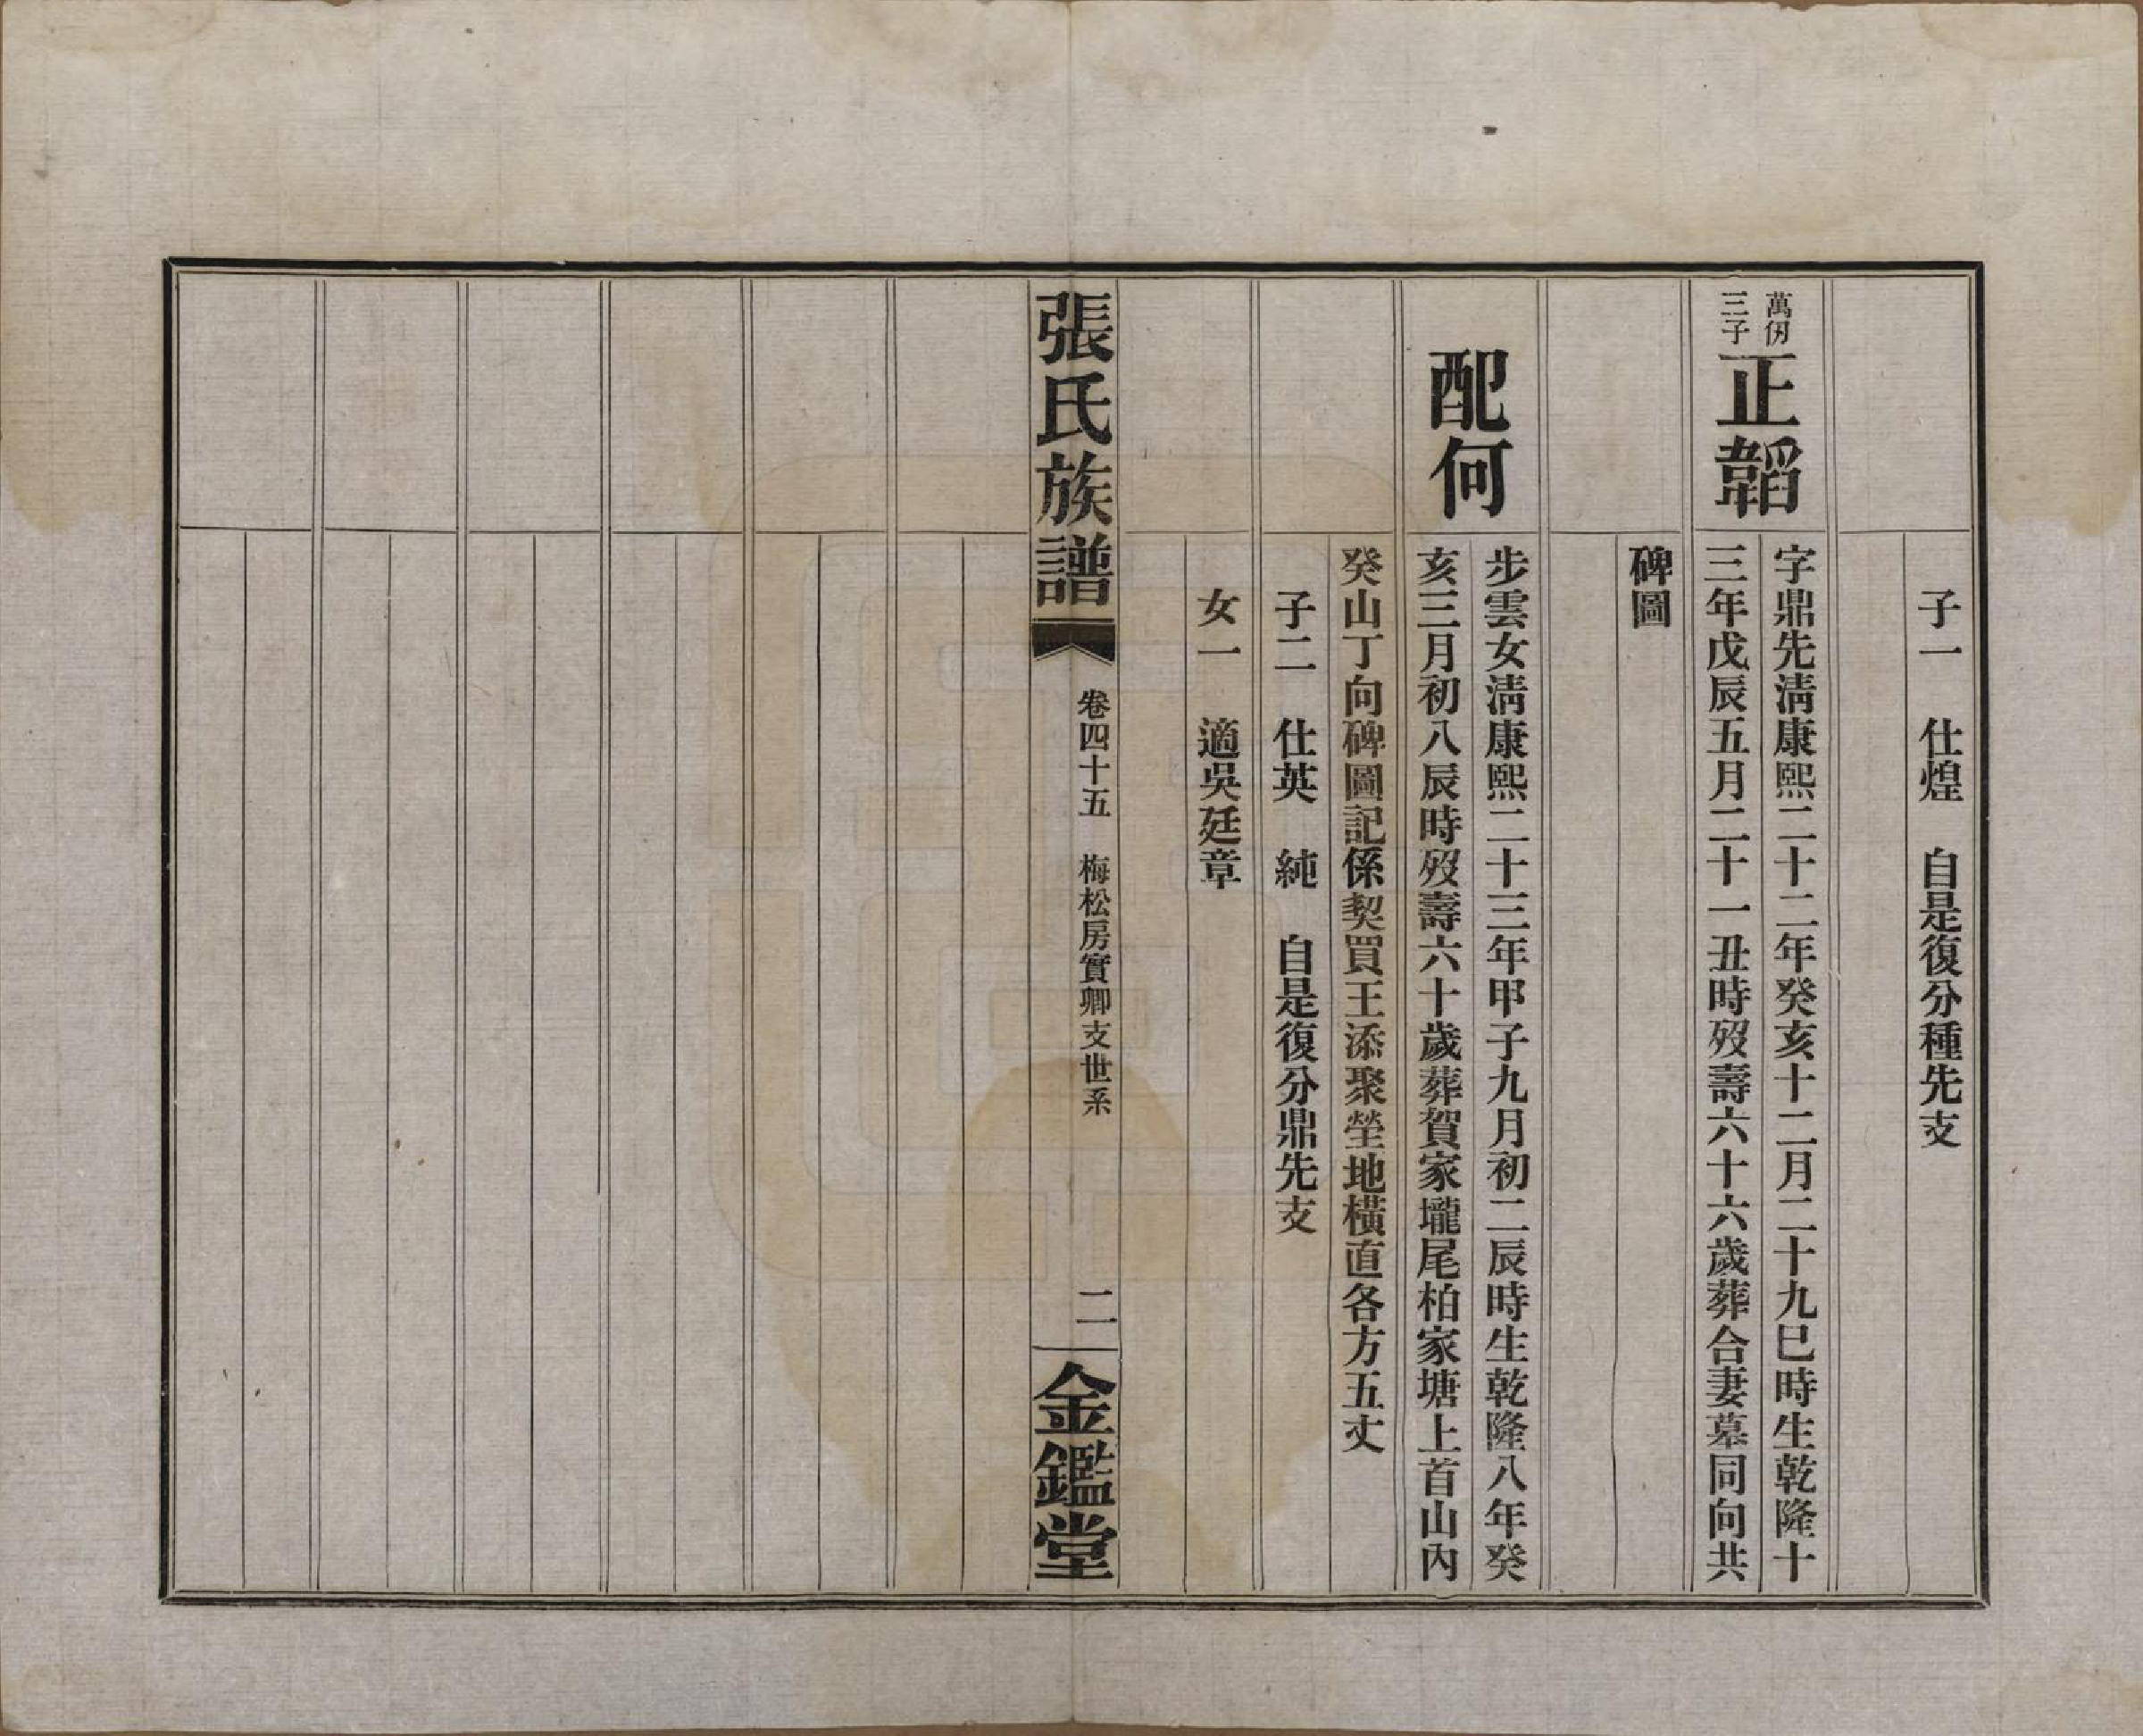 子一　仕煌　自是復分種先支
萬仞
三子
正韜
字鼎先清康熙二十二年癸亥十二月二十九巳時生乾隆十
三年戊辰五月二十一丑時歿壽六十六歲葬合妻墓同向共
碑圖
配何
步雲女清康熙二十三年甲子九月初二辰時生乾隆八年癸
亥三月初八辰時歿壽六十歲葬賀家壠尾柏家塘上首山內
癸山丁向碑圖記係契買王添聚塋地橫直各方五丈
子二　仕英　純　自是復分鼎先支
女一　適吳廷章
張氏族譜
卷四十五　梅松房實卿支世系
二
金鑑堂